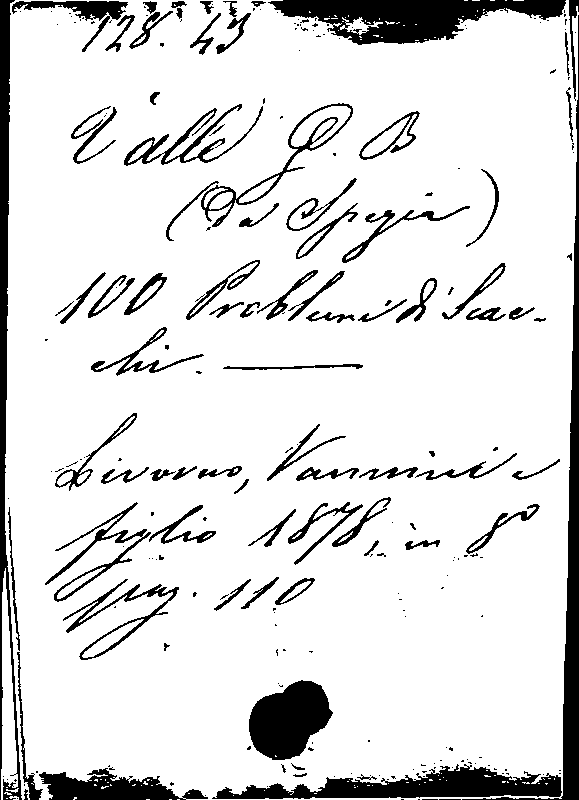 128. 43
Valle G. B
(Da Spezia)
100 Problemi di Scac-
chi.
Livorno, Vannini e
figlio 1878, in 8º
pag. 110